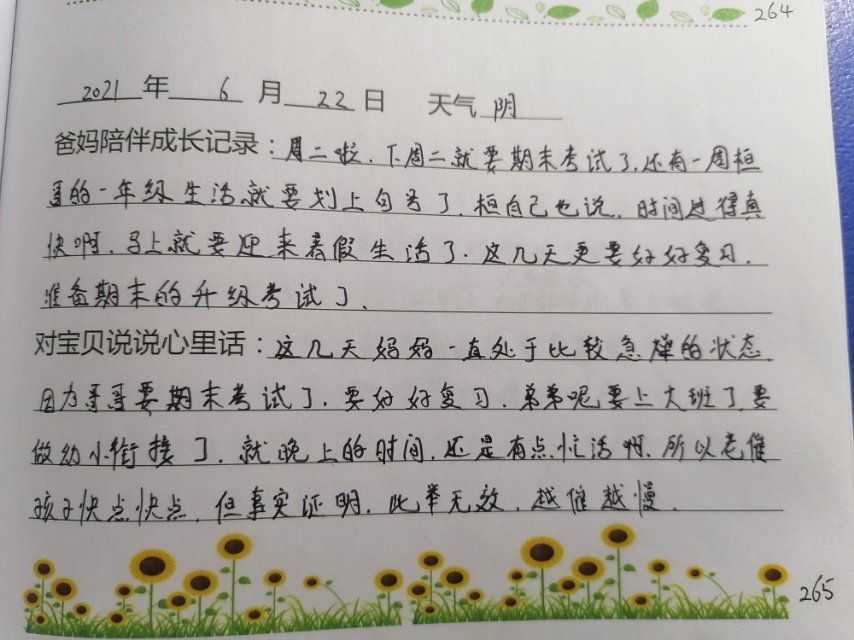 264
2021 年 6 月 22 日 天气 阴
爸妈陪伴成长记录：周二啦，下周二就要期末考试了，还有一周桓
哥的一年级生活就要划上句号了，桓自己也说，时间过得真
快啊，马上就要迎来暑假生活了。这几天更要好好复习，
准备期末的升级考试了。
对宝贝说说心里话：这几天妈妈一直处于比较急燥的状态，
因为哥哥要期末考试了，要好好复习，弟弟呢要上大班了要
做幼小衔接了，就晚上的时间，还是有点忙活啊，所以老催
孩子快点快点，但事实证明，此举无效，越催越慢。
265